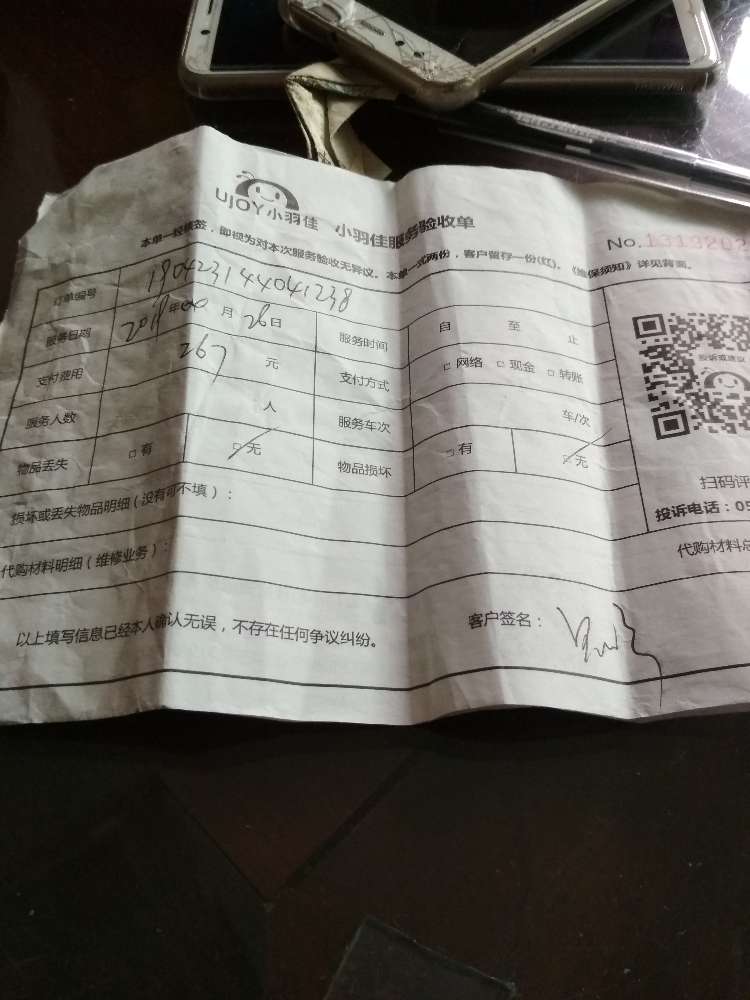 UJOY小羽佳 小羽佳服务验收单
No.1319202
本单一经核签，即视为对本次服务验收无异议。本单一式两份，客户留存一份(红)。《维保须知》详见背面。
订单编号 190423144041238
服务日期 年 月 26日 服务时间 自 至 止
支付费用 267 元 支付方式 □网络 □现金 □转账
服务人数 人 服务车次 车/次
物品丢失 □有 □无 物品损坏 □有 □无
投诉或建议
扫码评
投诉电话：05
损坏或丢失物品明细（没有可不填）：
代购材料明细（维修业务）： 代购材料总
以上填写信息已经本人确认无误，不存在任何争议纠纷。 客户签名：